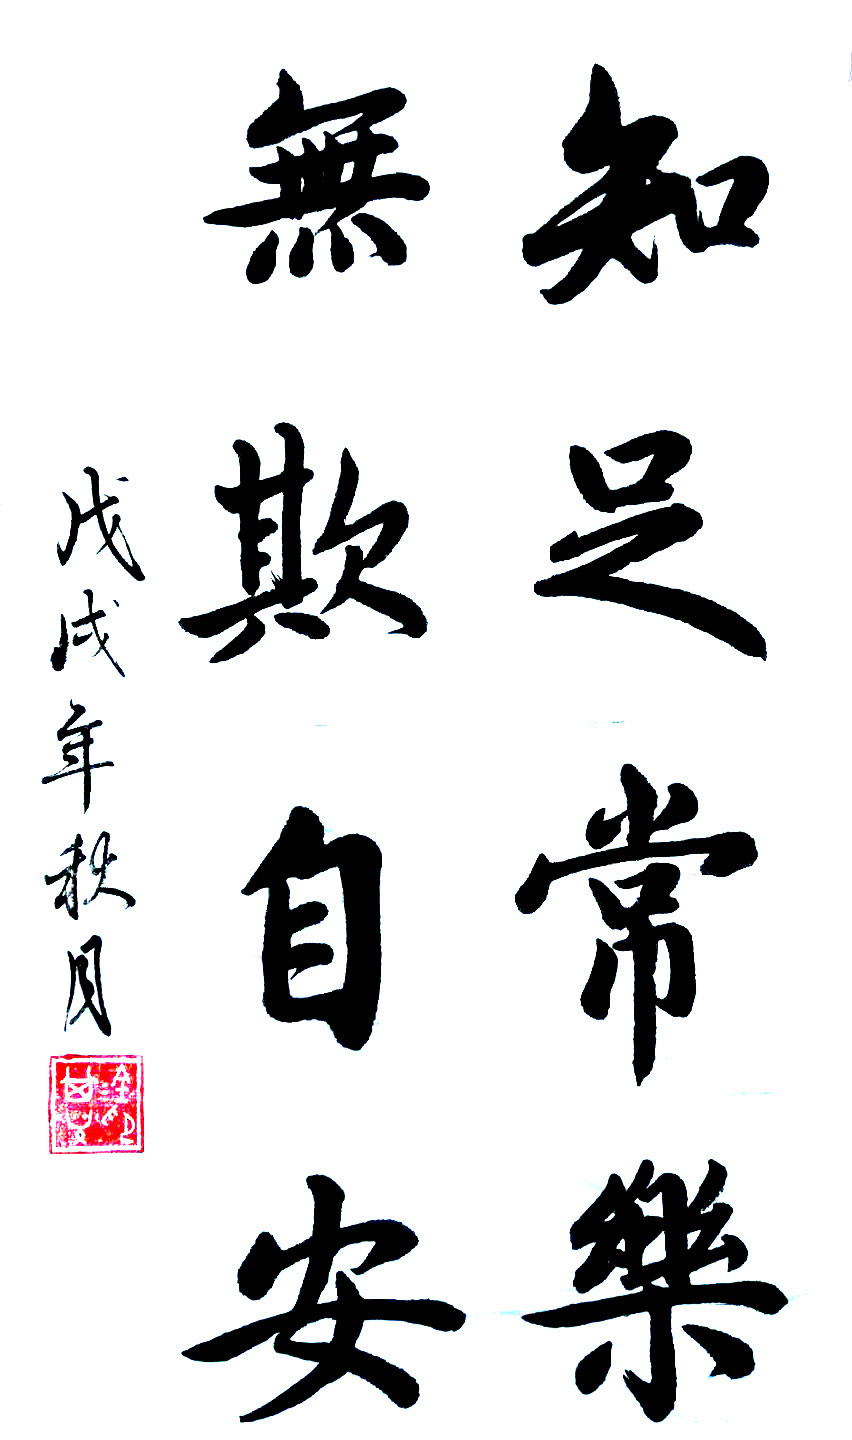 知足常樂
無欺自安
戊戌年秋月